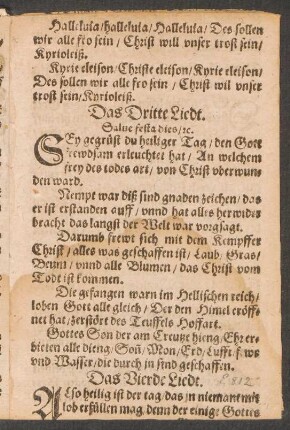 Halleluia/halleluia/Halleluia/Des sollen
wir alle fro sein/Christ will vnser trost sein/
Kyrioleiß.
Kyrie eleison/Christe eleison/Kyrie eleison/
Des sollen wir alle fro sein/Christ wil vnser
trost sein/Kyrioleiß.
Das Dritte Liedt.
Salue festa dies/ꝛc.
SEy gegrüst du heiliger Tag/den Gott
frewdsam erleuchtet hat/An welchem
frey des todes art/von Christ vberwun-
den ward.
Nempt war diß sind gnaden zeichen/das
er ist erstanden auff/vnnd hat alles herwider
bracht das langst der Welt war vorsagt.
Darumb frewt sich mit dem Kempffer
Christ/alles was geschaffen ist/Laub/Gras/
Beum/vnnd alle Blumen/das Christ vom
Todt ist kommen.
Die gefangen warn im Hellischen reich/
loben Gott alle gleich/Der den Himel eröff-
net hat/zerstört des Teuffels Hoffart.
Gottes Son der am Creutz hieng/Ehr er-
bieten alle dieng/Soñ/Mon/Erd/Lufft/
vnd Wasser/die durch in sind geschaffen.
Das Vierde Liedt.
ALso heilig ist der tag/das jn niemant mit
lob erfüllen mag/denn der einige Gottes